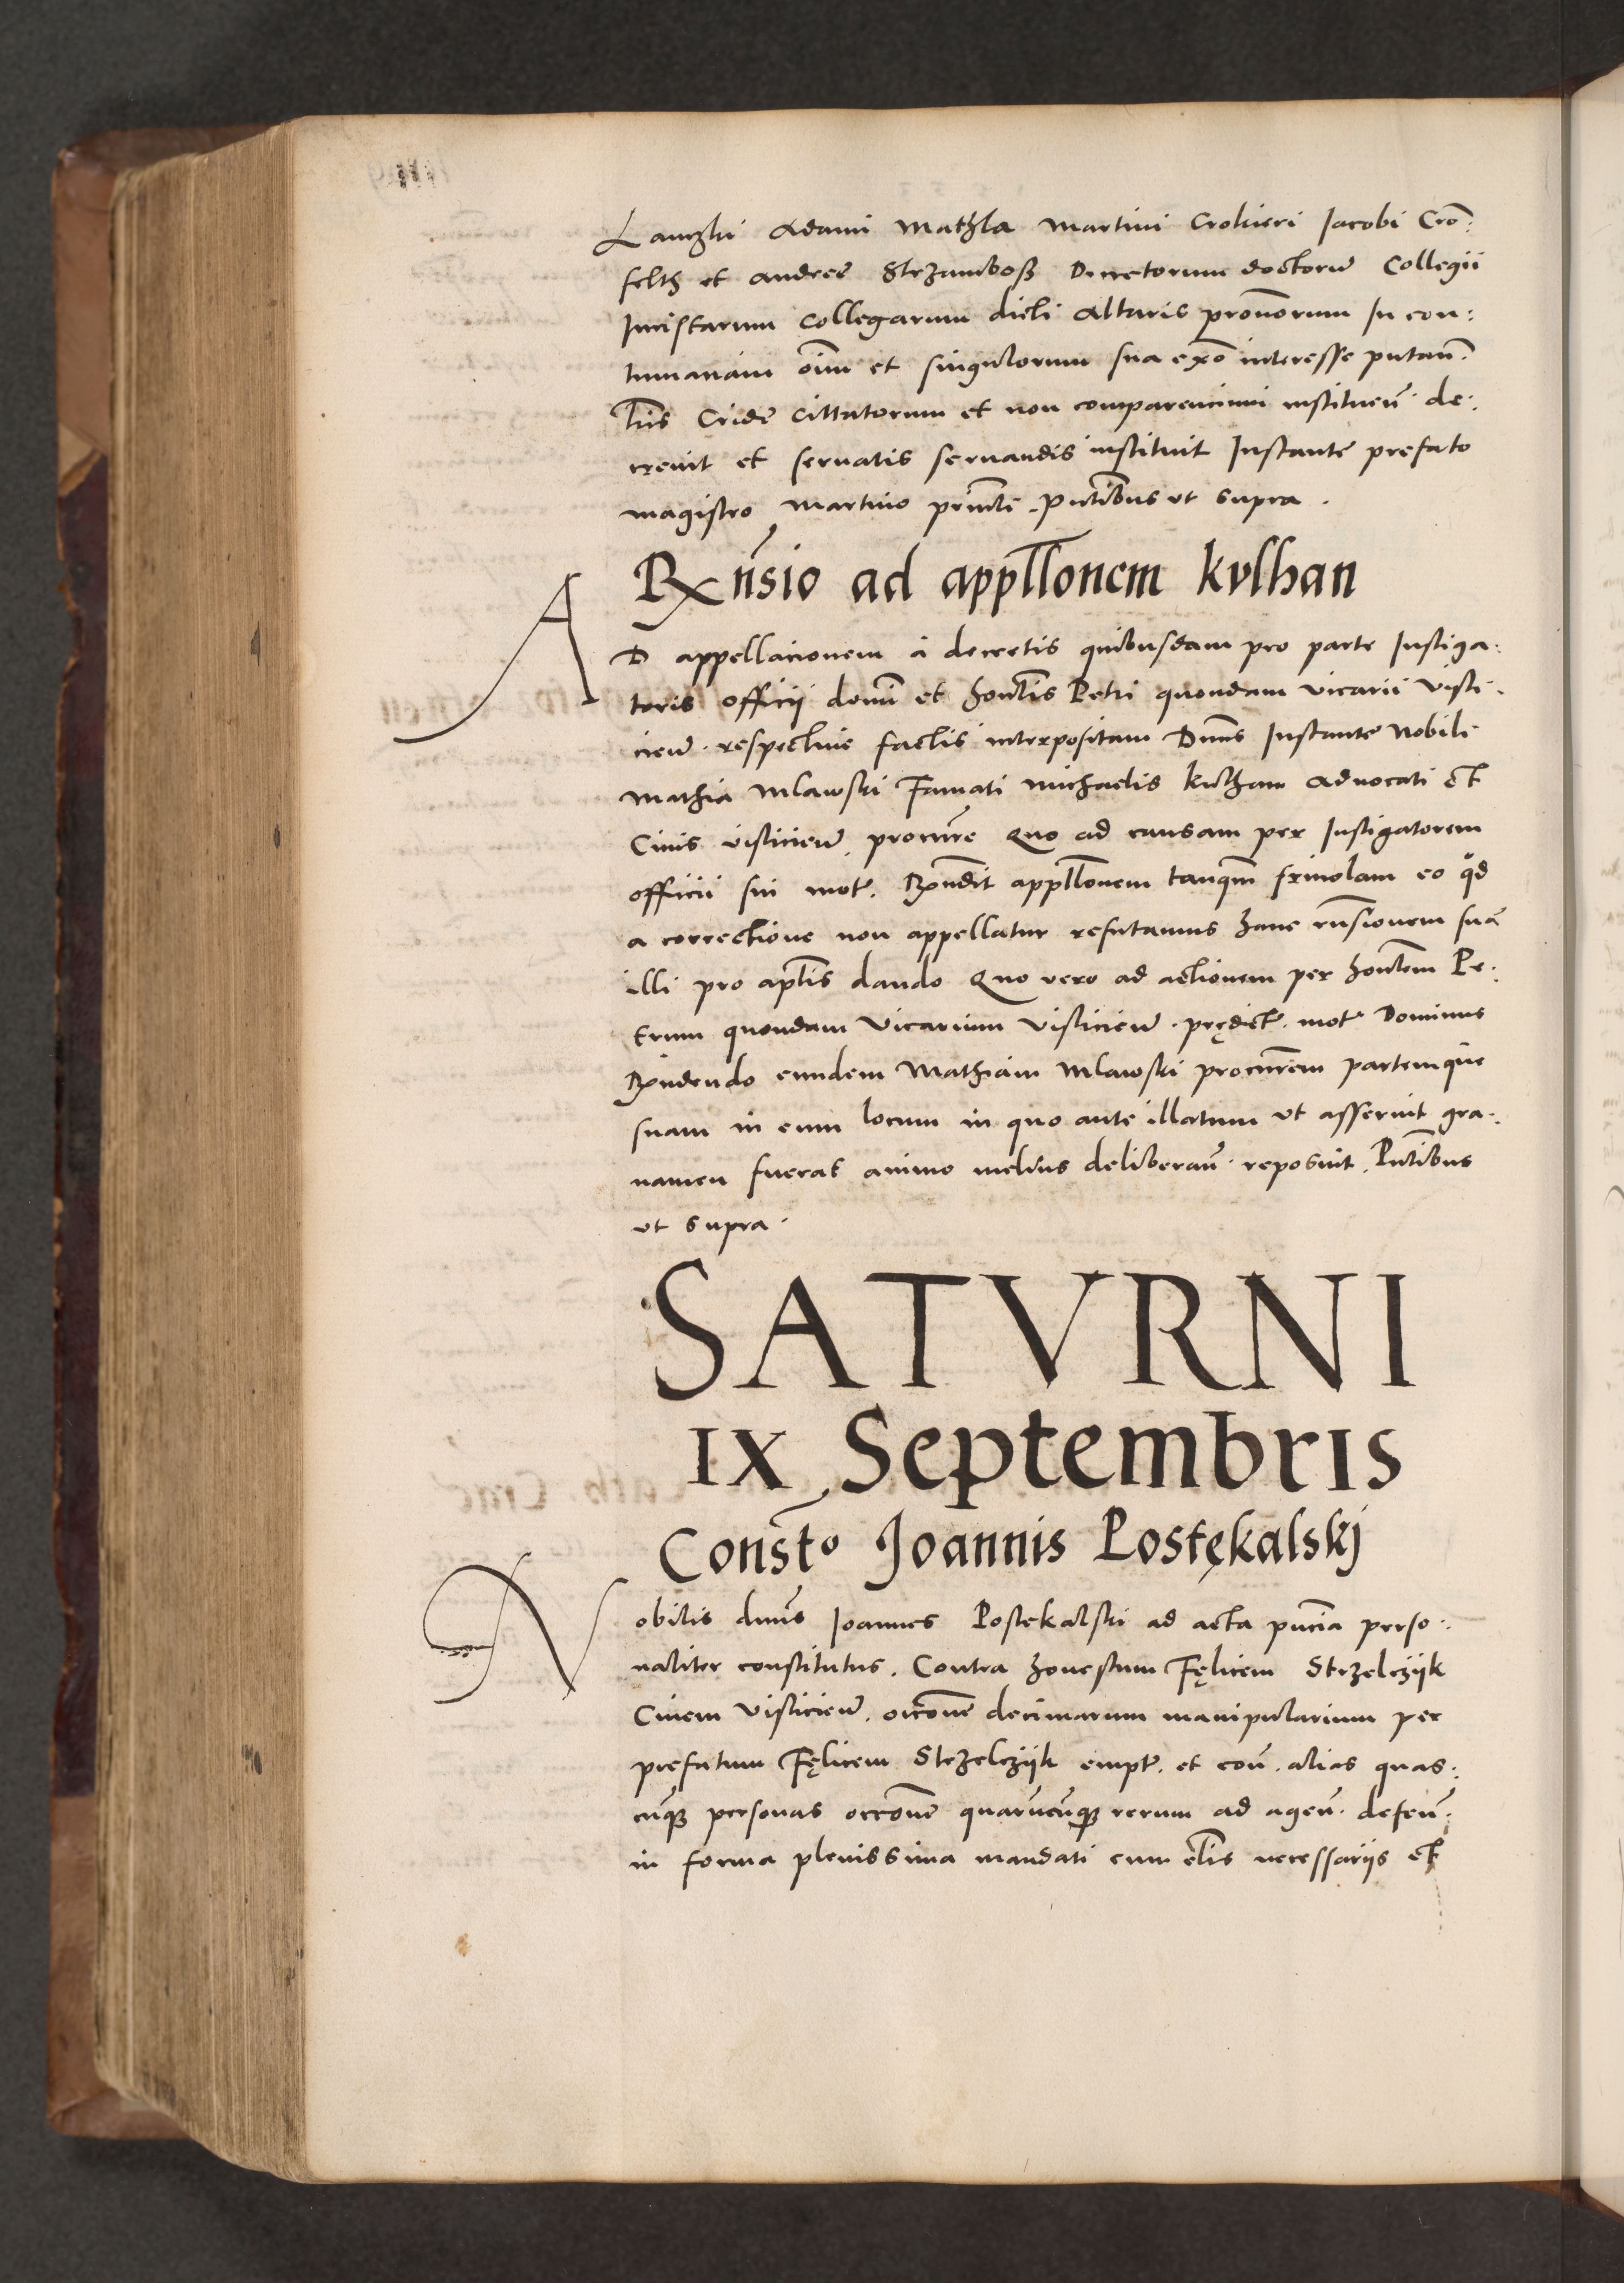 Lanczki Adami Mathla Martini Crokieri Jacobi Cro:
felth et Andreę Strzamboß Decretorum doctorū Collegii
Juristarum collegarum dicti Altaris pronorum In con:
tumaciam oīm et singulorum sua exō interesse putan̄.
tūs Cridę cittatorum et non comparencium instituen̄. de:
crevit et servatis servandis instituit Instante prefato
magistro Martino prn̄cte. Pn̄tibus ut supra.
Rn̄sio ad appłłonem kvlhan
AD appellacionem a decretis quibusdam pro parte Instiga:
toris officij domī et hon̄tis Petri quondam vicarii visli:
cien̄. respective factis interpositam Dnūs Instante Nobili
Mathia Mlawski Famati Michaelis kulhan advocati et
Civis vislicien̄. procure Quo ad causam per Instigatorem
officii sui mot̄. Rn̄dit appłłonem tanqm̄ frivolam eo qd
a correctione non appellatur refutamus hanc rn̄sionem suā
illi pro apłis dando Quo vero ad actionem per hon̄tem Pe:
trum quondam vicarium vislicien̄. prędict̄. mot̄. Dominus
Rn̄dendo eundem Mathiam Mlawski procurēm partemque
suam in eum locum in quo ante illatum ut asseruit gra:
vamen fuerat animo melius deliberan̄. reposuit. Pn̄tibus
ut supra.
SATVRNI
IX Septembris
Consto Joannis Postękalskj
Nobilis dnūs Joannes Postekalski ad acta pn̄cia perso:
naliter constitutus. Contra honestum Fęlicem Strzelczijk
Civem vislicien̄. occōne decimarum manipularium per
prefatum Fęlicem Strzelczijk empt̄. et con̄. alias quas:
cūqȝ personas occōne quarūcūqȝ rerum ad agen̄. defen̄.
in forma plenissima mandati cum cłłis necessariis et